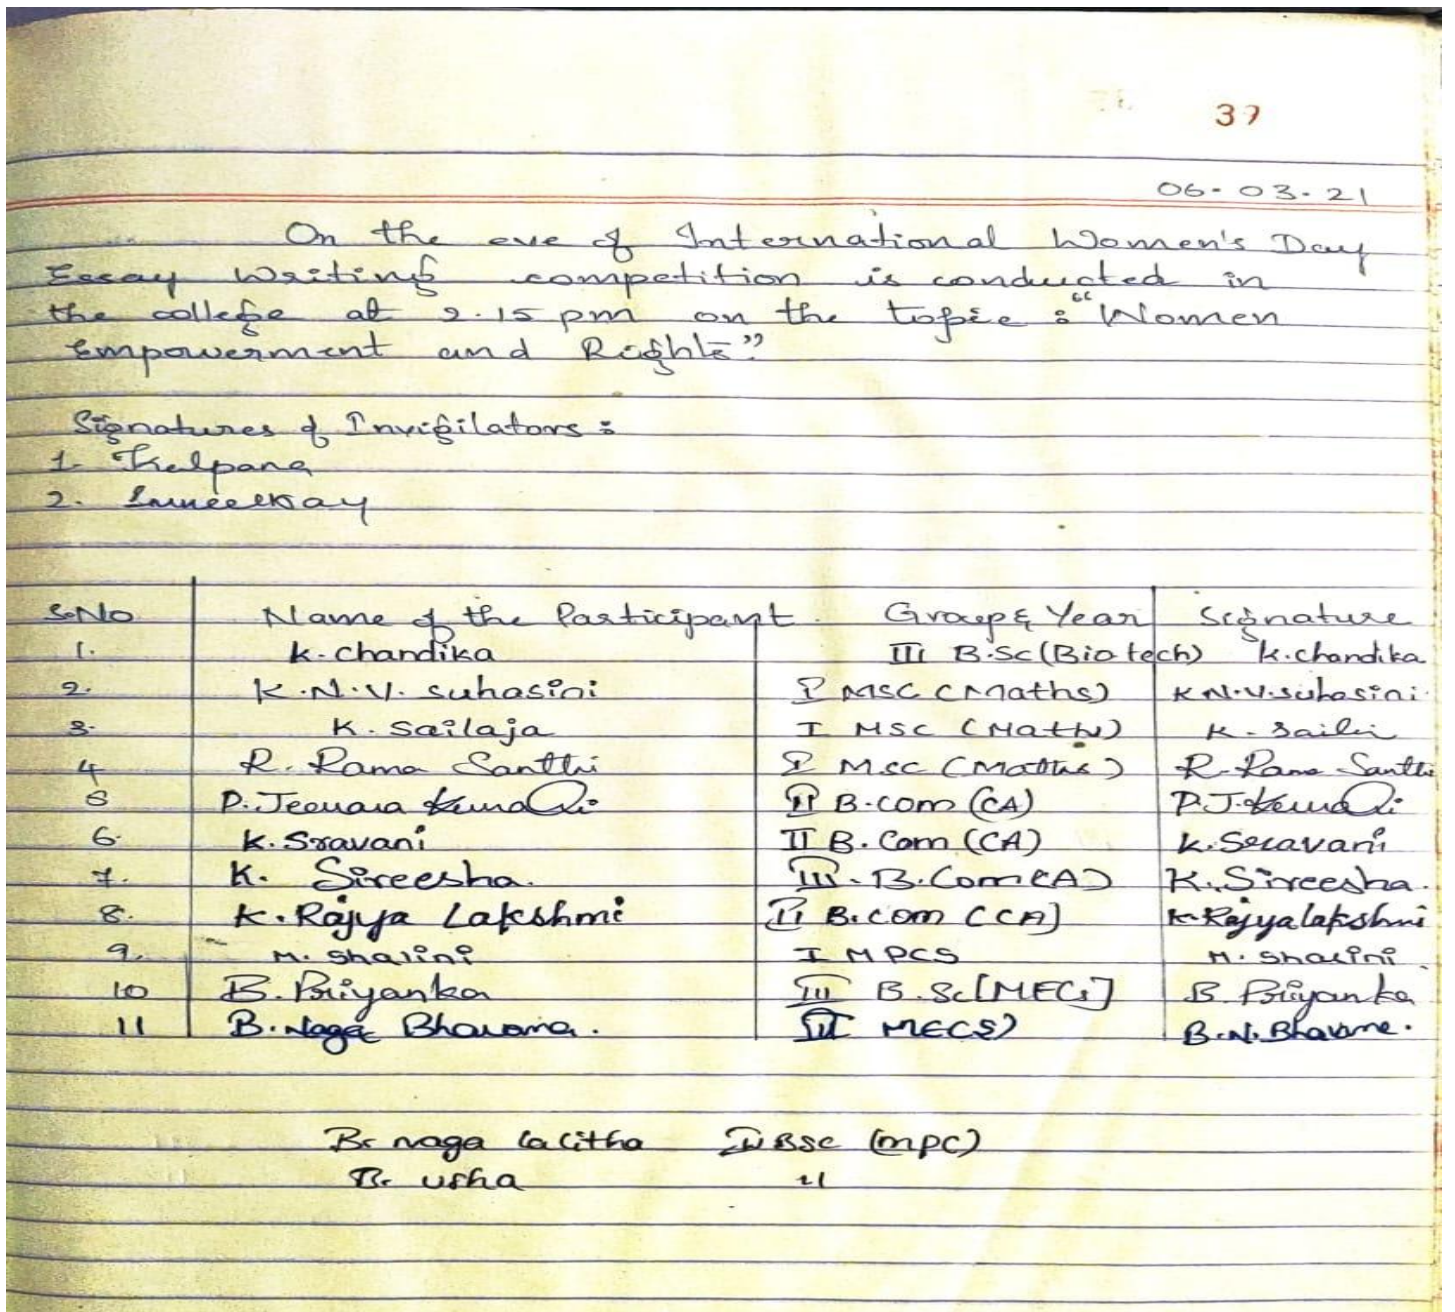 37
06-03-21
On the eve of International Women's Day
Essay Writing competition is conducted in
the college at 2.15 pm on the topic : "Women
Empowerment and Rights".
Signatures of Invigilators :
1. Kalpana
2.
S.No Name of the Participant Group & Year Signature
1. K. Chandika III B.Sc (Bio tech) K. Chandika
2. K.N.V. Suhasini I MSC (Maths) K N.V. Suhasini
3. K. Sailaja I MSC (Maths) K.
4 R. Rama Santhi I M.SC (Maths) R. Rama Santhi
5 P. Kumari II B.com (CA) P.J. Kumari
6. K. Sravani II B. Com (CA) K. Sravani
7. K. Sireesha. III. B.Com (CA) K. Sireesha.
8. K. Rajya Lakshmi II B.com (CA) K. Rajyalakshmi
9. M. Shalini I MPCS M. Shalini
10 B. Priyanka III B.Sc [MECs] B Priyanka
11 B. Naga Bhavana. III MECS) B.N. Bhavana.
B. naga lalitha BSC (MPC)
B. usha 11